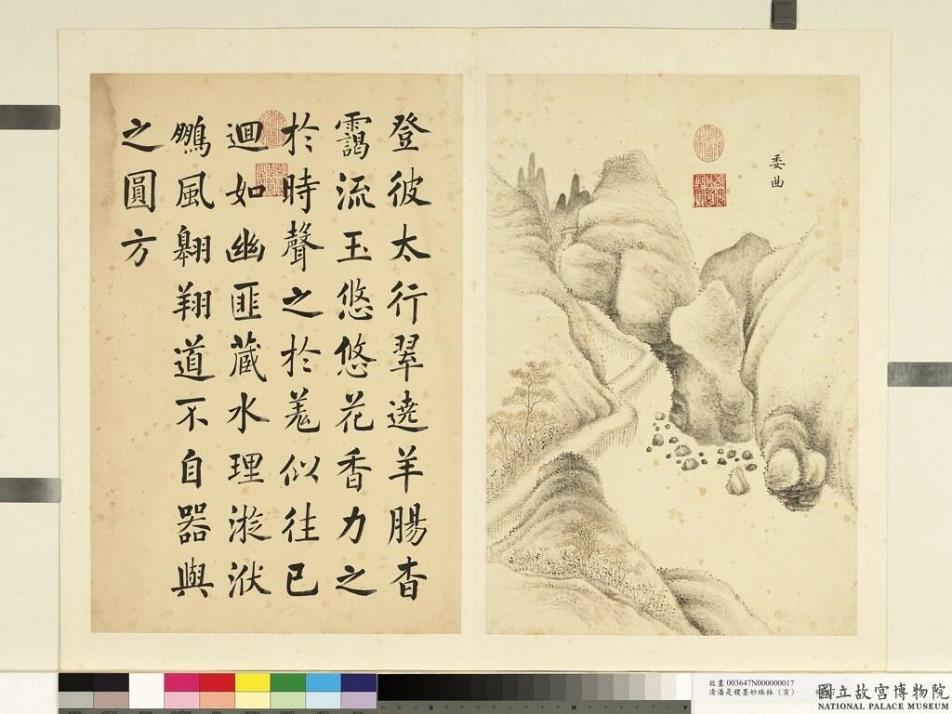 委曲
登彼太行翠遶羊腸杳
靄流玉悠悠花香力之
於時聲之於羌似往已
迴如幽匪藏水理漩洑
鵬風翱翔道不自器與
之圓方
故畫 003647N000000017
清潘是稷墨妙珠林
國立故宮博物院
NATIONAL PALACE MUSEUM